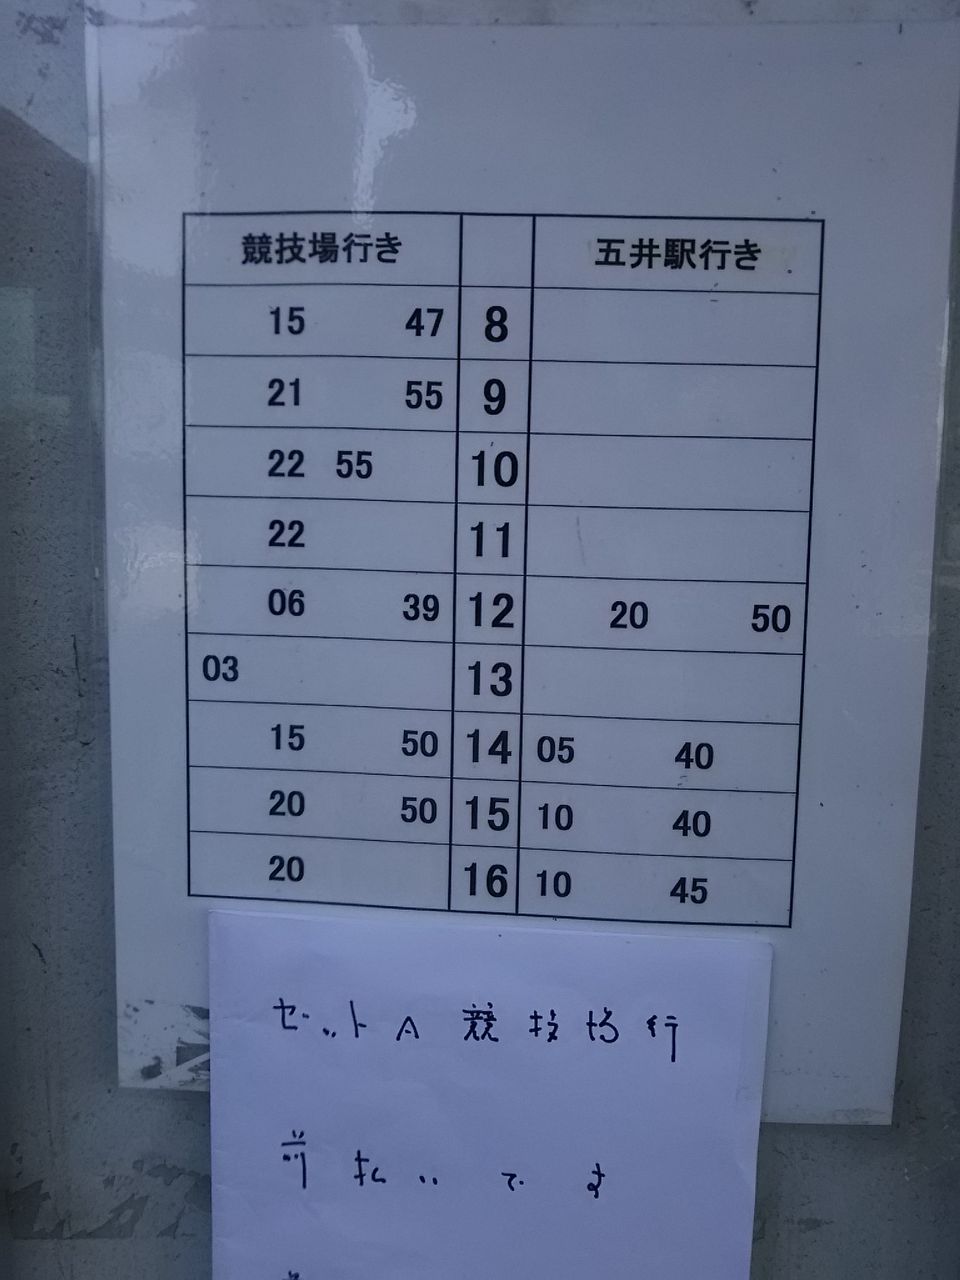 競技場行き 五井駅行き
15 47 8
21 55 9
22 55 10
22 11
06 39 12 20 50
03 13
15 50 14 05 40
20 50 15 10 40
20 16 10 45
セットA 競技場行
前払いです